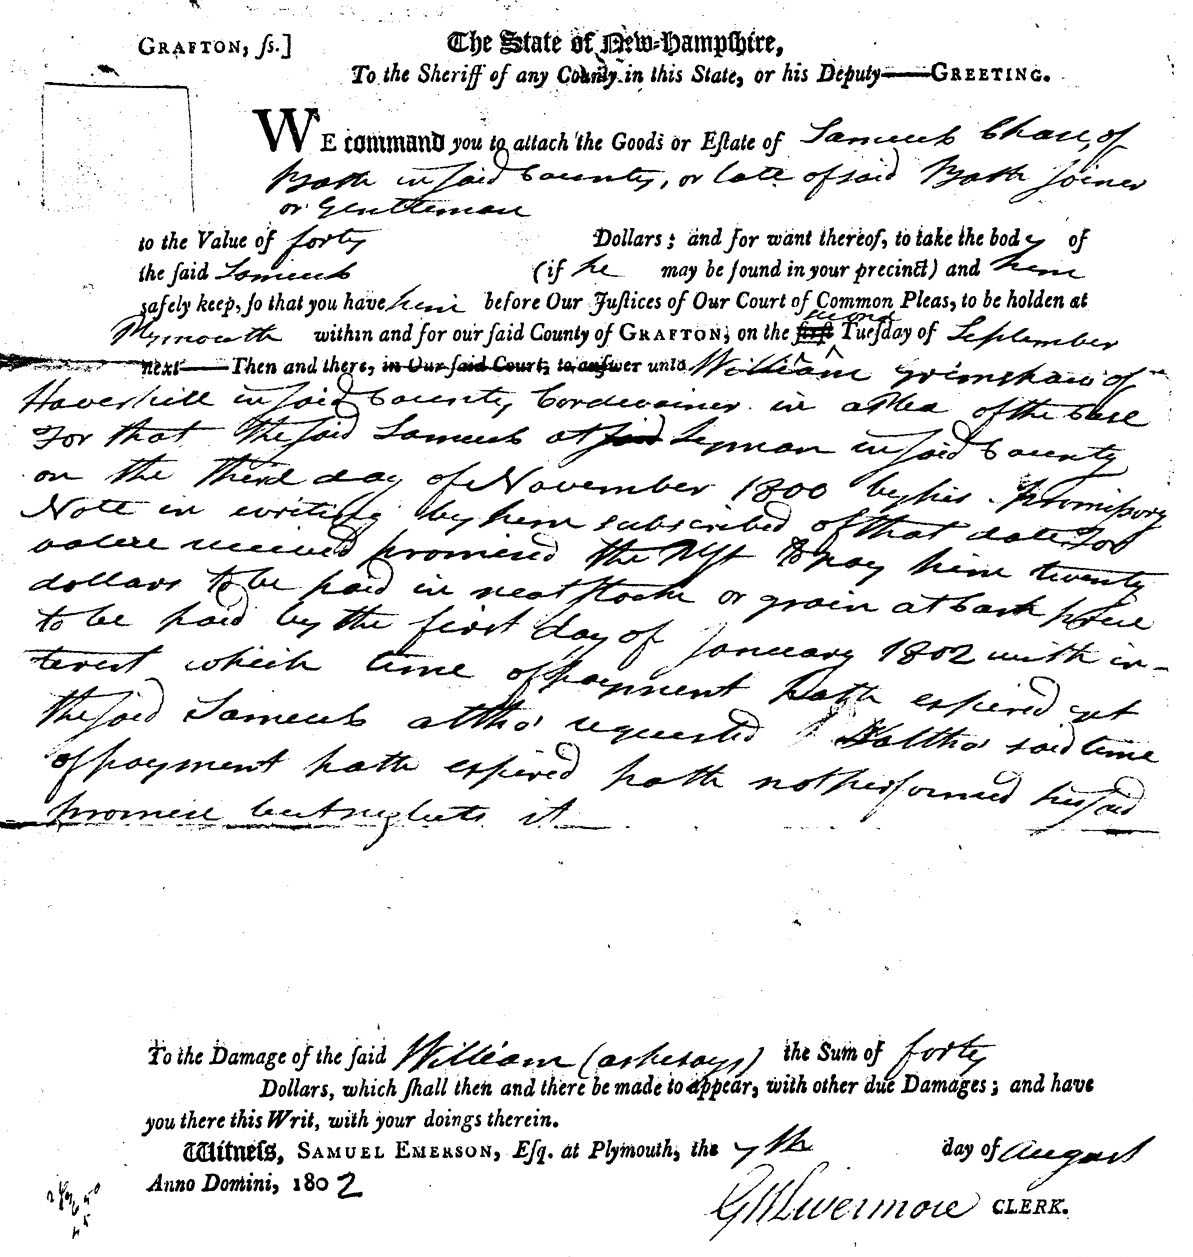 GRAFTON, ſs.]
The State of New-Hampſhire,
To the Sheriff of any County in this State, or his Deputy——GREETING.
WE command you to attach the Goods or Eſtate of Samuel Chase of
Bath in said County, or late of said Bath Joiner
or Gentleman
to the Value of forty Dollars; and for want thereof, to take the body of
the ſaid Samuel (if he may be found in your precinct) and him
safely keep, ſo that you have him before Our Juſtices of Our Court of Common Pleas, to be holden at
second
Plymouth within and for our ſaid County of GRAFTON, on the firſt Tueſday of September
next——Then and there, in Our ſaid Court, to anſwer unto William Grimshaw of
Haverhill in said County Cordwainer in a Plea of the Case
For that the said Samuel at said Lyman in said County
on the third day of November 1800 by his promissory
Note in writing by him subscribed of that date for
value received promised the Plf to pay him twenty
dollars to be paid in neat stock or grain at Cash price
to be paid by the first day of January 1802 with in-
terest which time of payment hath expired yet
the said Samuel altho' requested & altho' said time
of payment hath expired hath not performed his said
promise but neglects it
To the Damage of the ſaid William (as he says) the Sum of forty
Dollars, which ſhall then and there be made to appear, with other due Damages; and have
you there this Writ, with your doings therein.
Witneſs, SAMUEL EMERSON, Eſq. at Plymouth, the 7th day of August
Anno Domini, 1802
Livermore CLERK.